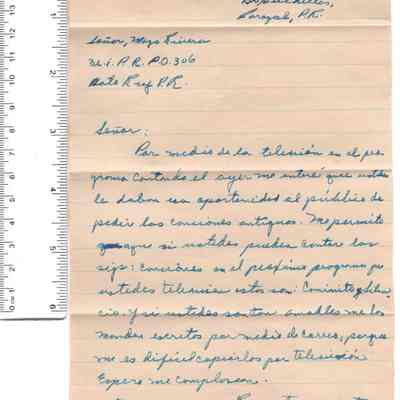 Corozal, P.R.
Señor, Moso Rivera
W.I.P.R. P.O. 306
Hato Rey P.R.
Señor:
Por medio de la televisión en el pro-
grama Cantando el ayer me enteré que ustedes
le daban una oportunidad al público de
pedir las canciones antiguas. Me permito
que si ustedes pueden cantar las
sigs: canciones en el próximo programa por
ustedes televisar estas son:
cio. Y si ustedes son tan amables me las
mandan escritas por medio de correo, porque
me es difícil copiarlas por televisión
Espero me complazcan.